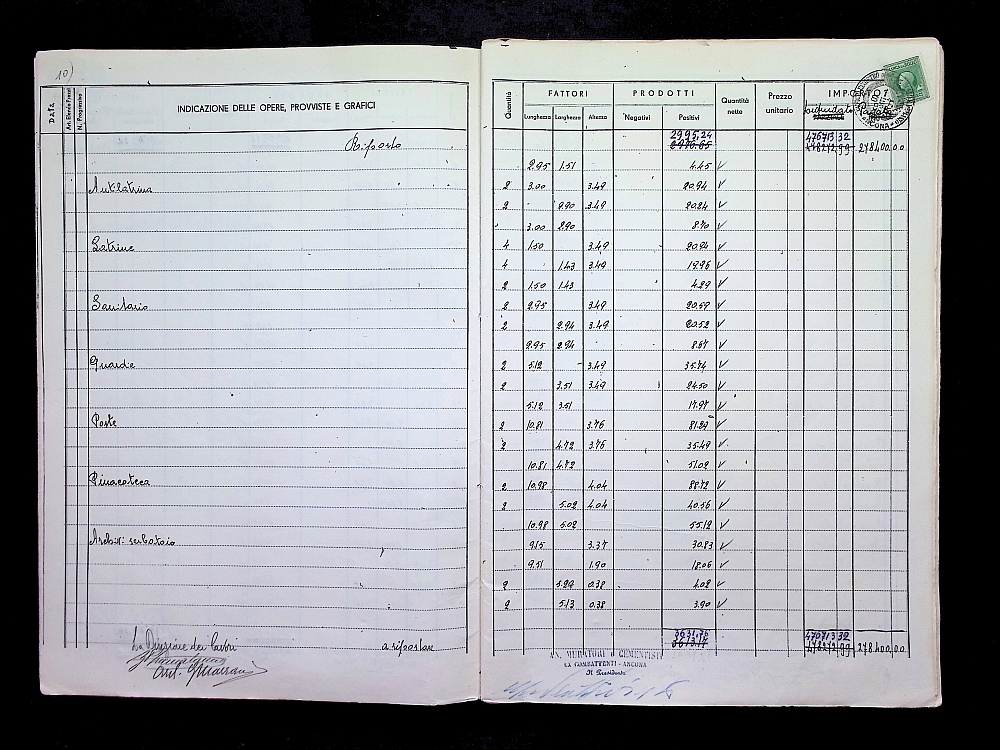 10)
DATA
N. Progressivo
INDICAZIONE DELLE OPERE, PROVVISTE E GRAFICI
Quantità
FATTORI
Lunghezza Larghezza Altezza
PRODOTTI
Negativi Positivi
Quantità nette
Prezzo unitario
IMPORTO
Riporto 2995,24 476713 32
278400,00
2.95 1.51 4.45 V
Antilatrina 2 3.00 3.49 20.94 V
2 2.90 3.49 20.24 V
3.00 2.90 8.70 V
Latrine 4 1.50 3.49 20.94 V
4 1.43 3.49 19.96 V
2 1.50 1.43 4.29 V
Sanitario 2 2.95 3.49 20.59 V
2 2.94 3.49 20.52 V
2.95 2.94 8.67 V
Guardie 2 5.12 3.49 35.74 V
2 3.51 3.49 24.50 V
5.12 3.51 17.97 V
Poste 2 10.81 3.76 81.29 V
2 4.72 3.76 35.49 V
10.81 4.72 51.02 V
Pinacoteca 2 10.98 4.04 88.72 V
2 5.02 4.04 40.56 V
10.98 5.02 55.12 V
Archivi serbatoio 9.15 3.37 30.83 V
9.51 1.90 18.06 V
2 5.29 0.38 4.02 V
2 5.13 0.38 3.90 V
La Direzione dei Lavori
a riportare 3631,76 476713 32
278400,00
AN. MURATORI e CEMENTISTI
EX COMBATTENTI - ANCONA
Il Presidente